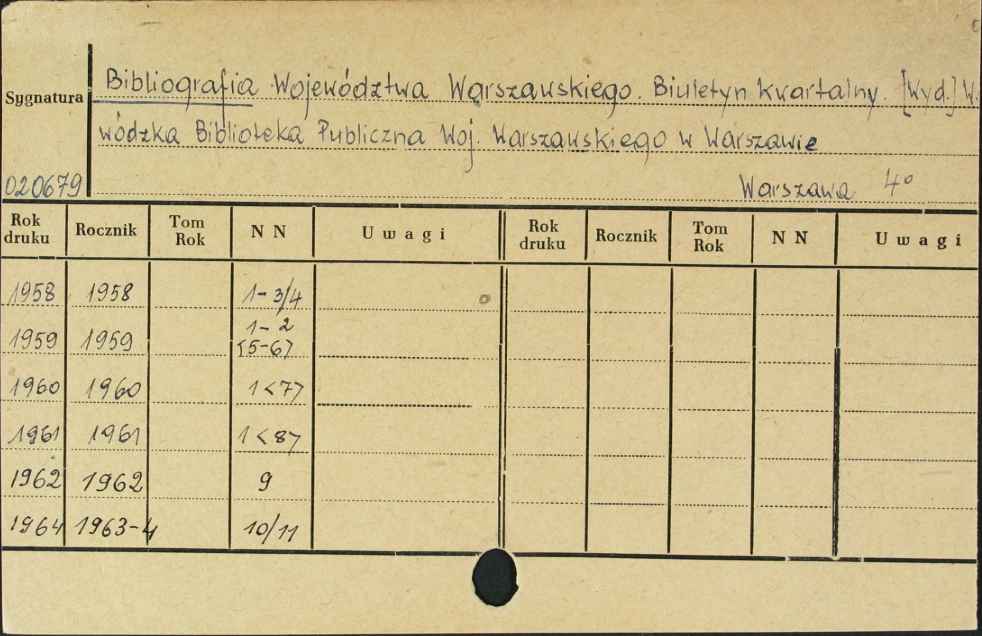 Sygnatura
Bibliografia Województwa Warszawskiego. Biuletyn kwartalny. [Wyd.] W.
wódzka Biblioteka Publiczna Woj. Warszawskiego w Warszawie
020679 Warszawa 4°
Rok druku Rocznik Tom Rok NN Uwagi Rok druku Rocznik Tom Rok NN Uwagi
1958 1958 1-3/4
1959 1959 1-2 <5-6>
1960 1960 1<7>
1961 1961 1<8>
1962 1962 9
1964 1963-4 10/11